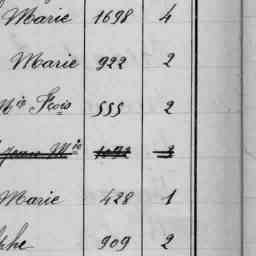 Marie 1698 4
Marie 922 2
Mie Fçois 555 2
Jean Mie 1092 2
Marie 428 1
phe 909 2